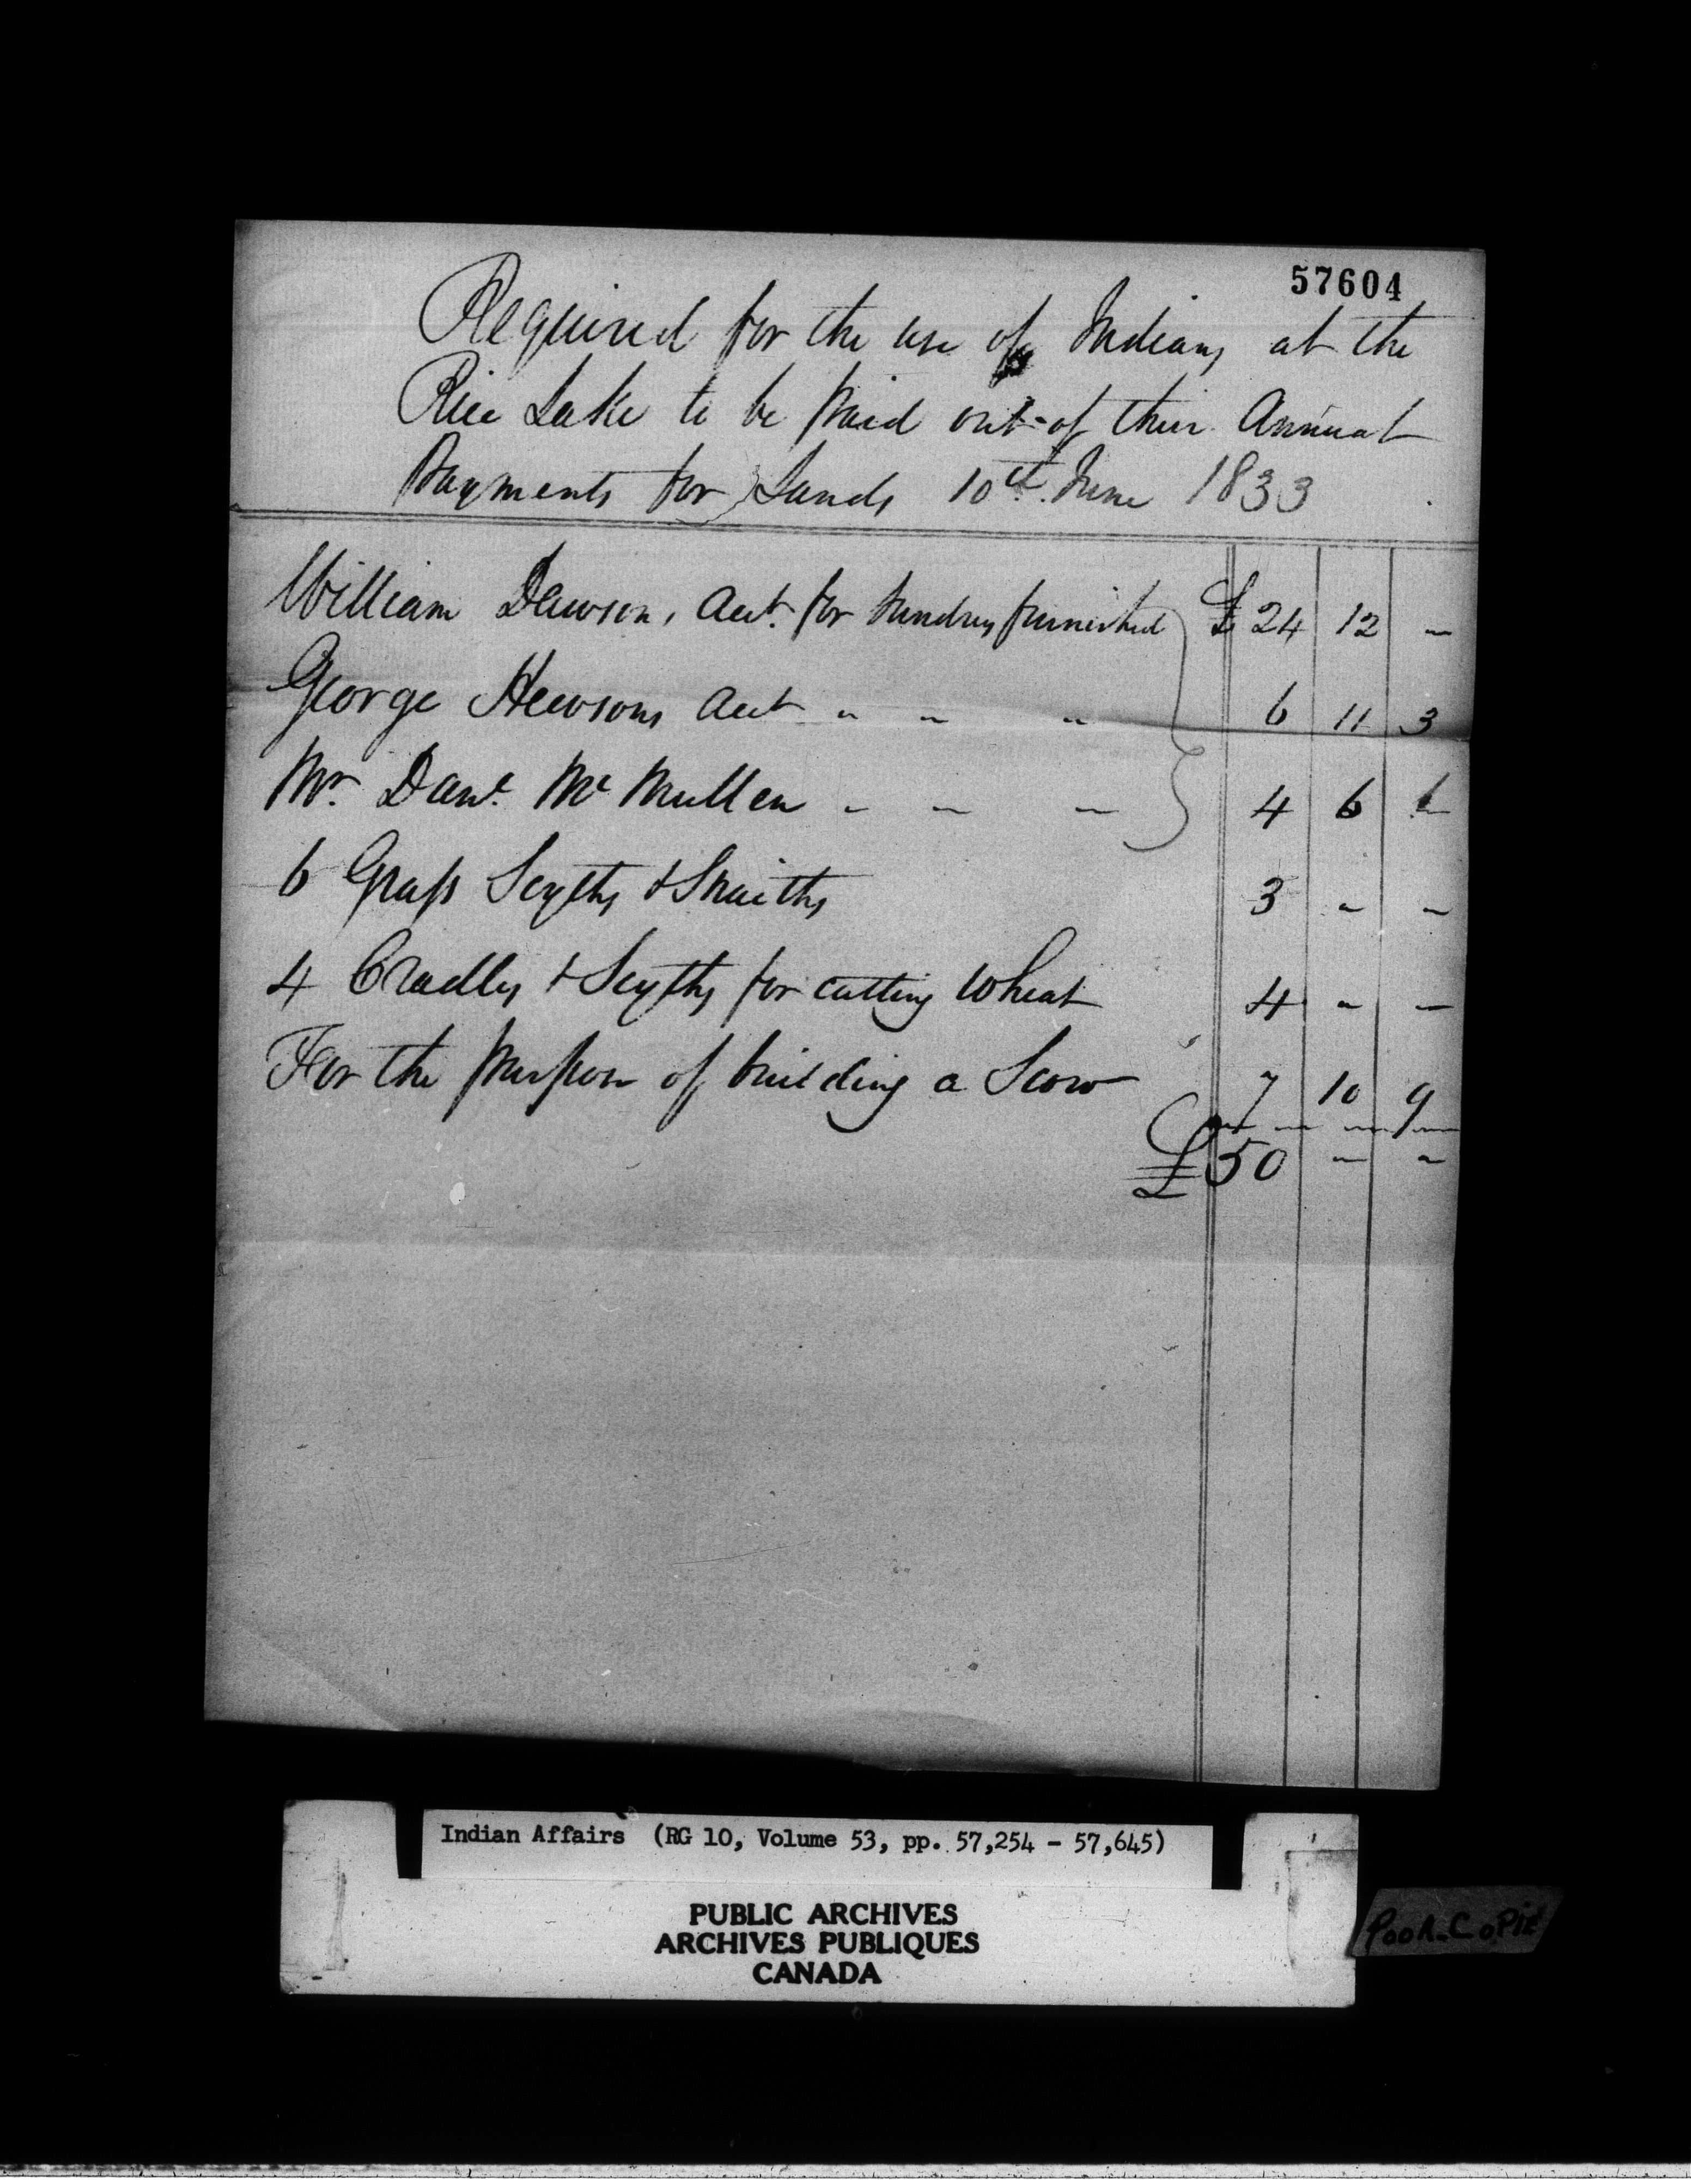 57604
Required for the use of Indians at the
Rice Lake to be paid out of their Annual
Payments for Lands 10th June 1833
William Dawson, Acct. for Sundries furnished £ 24 12 –
George Hewsons Acct " " " 6 11 3
Mr. Danl. Mc Mullen – – – 4 6 –
6 Grass Scyths & Snaiths 3 – –
4 Cradles & Scyths for cutting Wheat 4 – –
For the purpose of building a Scow 7 10 9
£50 – –
Indian Affairs (RG 10, Volume 53, pp. 57,254 - 57,645)
PUBLIC ARCHIVES
ARCHIVES PUBLIQUES
CANADA
POOR COPIE